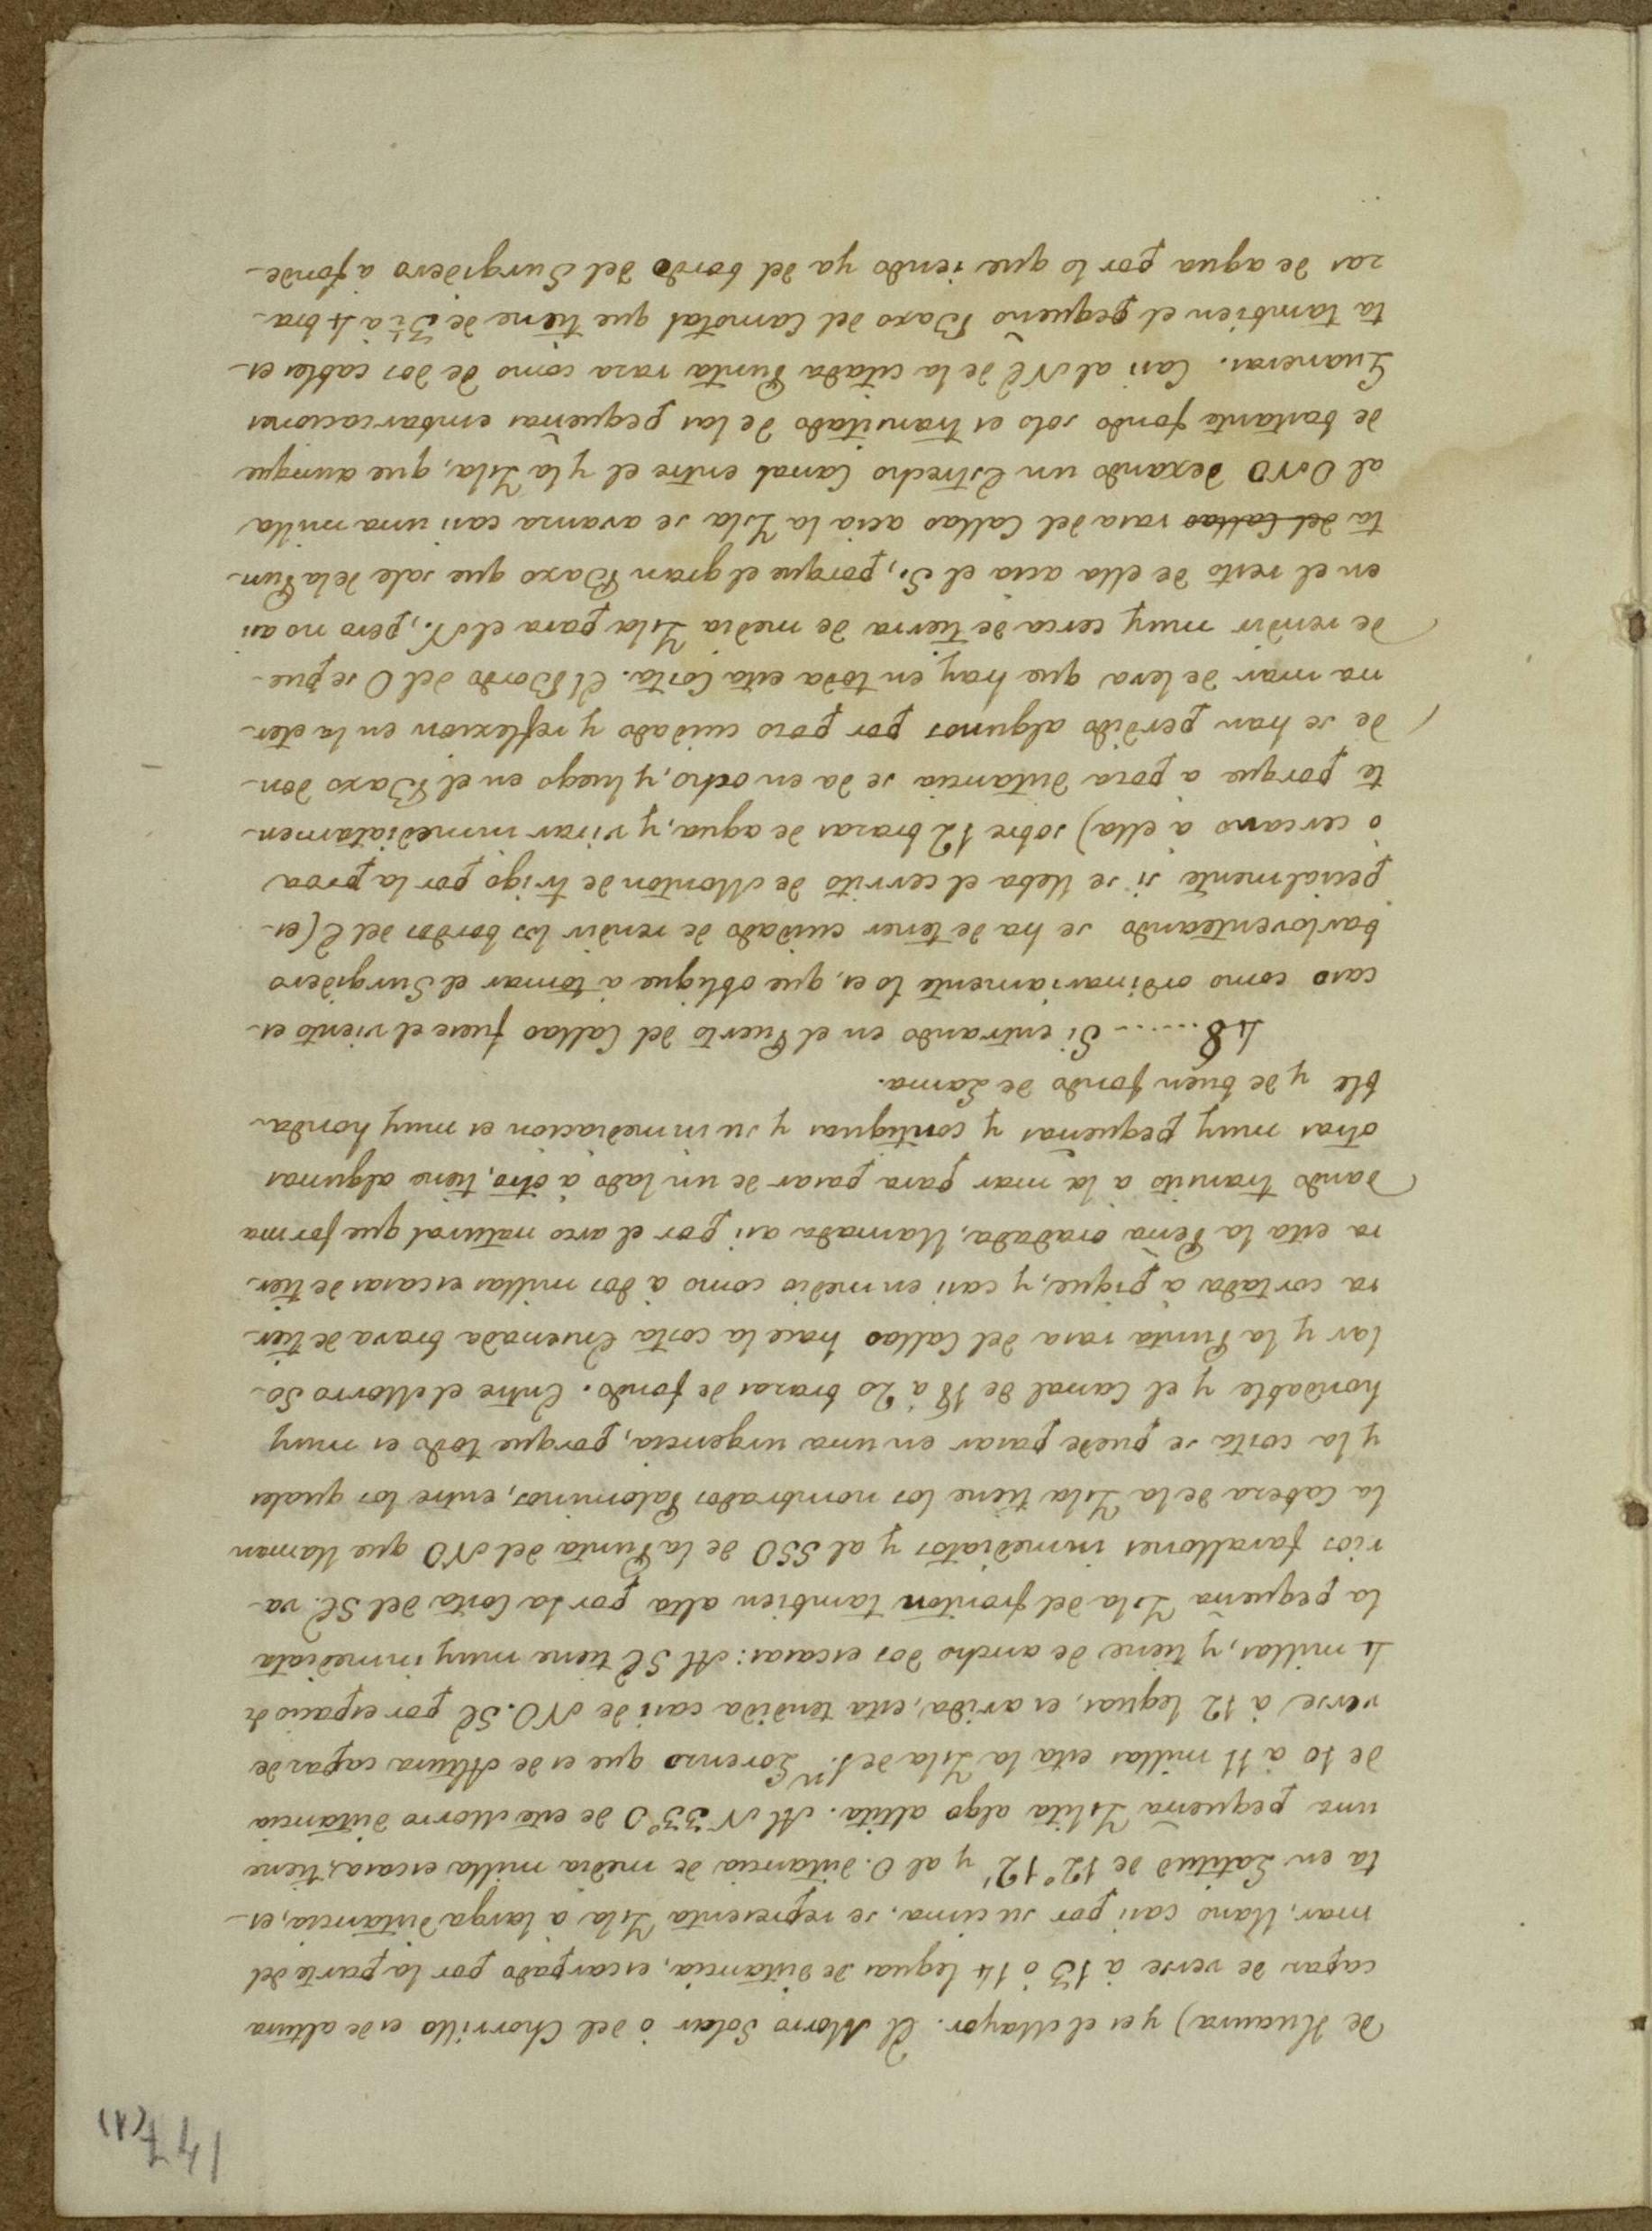 147(v)
de Huaura) y es el Mayor. El Morro Solar ò del Chorrillo es de altura
capas de verse à 13 ò 14 leguas de distancia, escarpado por la parte del
mar, llano casi por su cima, se representa Isla à larga distancia, es-
ta en Latitud de 12° 12' y al O. distancia de media milla escasa, tiene
una pequeña Islita algo altita. Al N 33° O de este Morro distancia
de 10 à 11 millas esta la Isla de S.n Lorenzo que es de Altura capas de
verse à 12 leguas, es arida, esta tendida casi de NO. SE por espacio de
4 millas, y tiene de ancho dos escasas: Al SE tiene muy inmediata
la pequeña Isla del fronton tambien alta por la Costa del SE. va-
rios farallones inmediatos y al SSO de la Punta del NO que llaman
la Cabeza de la Isla tiene los nombrados Palominos, entre los quales
y la costa se puede pasar en una urgencia, porque todo es muy
hondable y el Canal de 18 à 20 brazas de fondo. Entre el Morro So-
lar y la Punta rasa del Callao hace la costa Ensenada brava de tier-
ra cortada à pique, y casi en medio como à dos millas escasas de tier-
ra esta la Peña oradada, llamada asi por el arco natural que forma
dando transito à la mar para pasar de un lado à otro, tiene algunas
otras muy pequeñas y contiguas y su inmediacion es muy honda-
ble y de buen fondo de Lama.
48....... Si entrando en el Puerto del Callao fuese el viento es-
caso como ordinariamente lo es, que obligue à tomar el Surgidero
barloventeando se ha de tener cuidado de rendir los bordos del E (es-
pecialmente si se lleba el cerrito de Monton de trigo por la proa
ò cercano à ella) sobre 12 brazas de agua, y virar inmediatamen-
te porque à poca distancia se da en ocho, y luego en el Baxo don-
de se han perdido algunos por poco cuidado y reflexion en la eter-
na mar de leva que hay en toda esta Costa. El Bordo del O se pue-
de rendir muy cerca de tierra de media Isla para el N., pero no asi
en el resto de ella acia el S., porque el gran Baxo que sale de la Pun-
ta del Callao rasa del Callao acia la Isla se avanza casi una milla
al ONO dexando un Estrecho Canal entre el y la Isla, que aunque
de bastante fondo solo es transitado de las pequeñas embarcaciones
Guaneras. Casi al NE de la citada Punta rasa como de dos cables es-
ta tambien el pequeño Baxo del Camotal que tiene de 3½ à 4 bra-
zas de agua por lo que siendo ya del bordo del Surgidero à fonde-